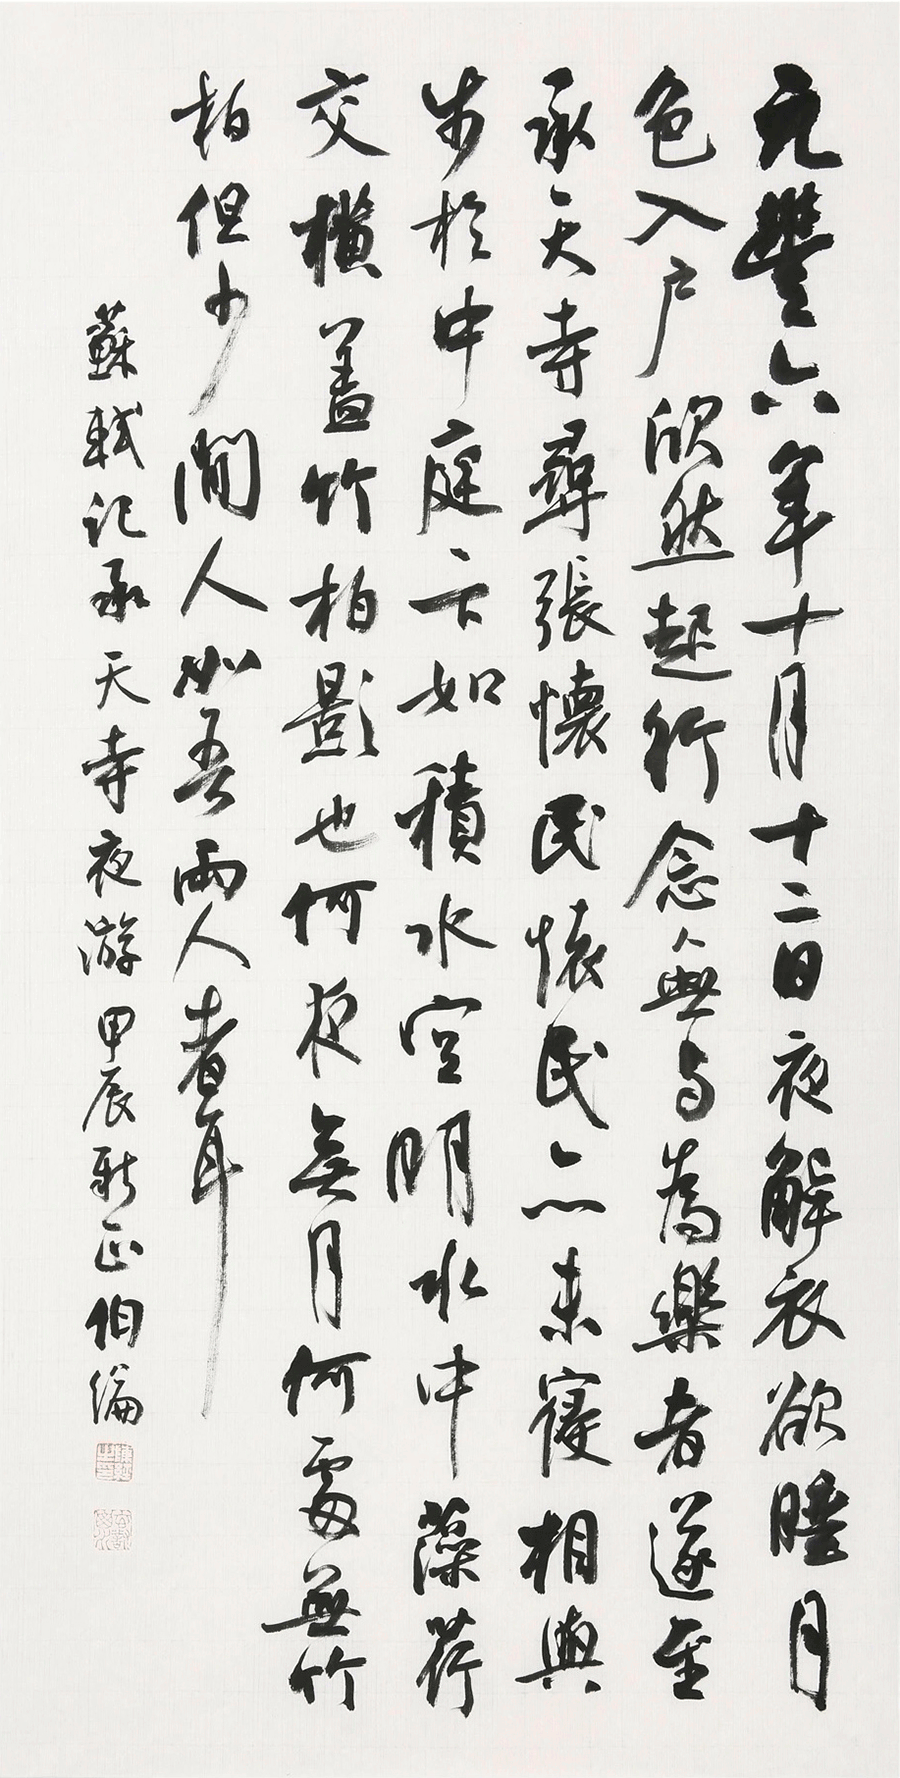 元豐六年十月十二日夜解衣欲睡月
色入户欣然起行念無与為樂者遂至
承天寺尋張懷民懷民亦未寢相與
步於中庭庭下如積水空明水中藻荇
交橫盖竹柏影也何夜無月何處無竹
柏但少閒人如吾兩人者耳
蘇軾記承天寺夜游甲辰新正伯綸